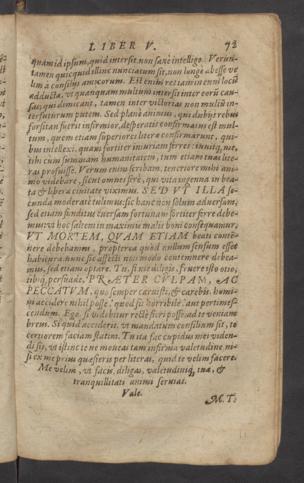 LIBER V. 73
quam id ipsum, quid intersit non sanè intelligo. Verun-
tamen quicquid illinc nunciatum sit, non longe abesse ve
lim à consilijs amicorum. Est enim res iam in eum locū
adducta, vt quanquam multum intersit inter eorū cau-
sas, qui dimicant, tamen inter victorias non multū in-
terfuturum putem. Sed planè animus, qui dubijs rebus
forsitan fuerit infirmior, desperatis confirmatus est mul-
tum, quem etiam superiores literæ confirmarunt, qui-
bus intellexi, quàm fortiter iniuriam ferres: iuuitq́; me,
tibi cum summam humanitatem, tum etiam tuas lite-
ras profuisse. Verum enim scribam, teneriore mihi ani-
mo videbare, sicut omnes ferè, qui vita ingenua in bea-
ta & libera ciuitate viximus. SED VT ILLA se-
cunda moderatè tulimus: sic hanc non solùm aduersam,
sed etiam funditus euersam fortunam fortiter ferre debe-
mus: vt hoc saltem in maximis malis boni consequamur,
VT MORTEM, QVAM ETIAM beati contē-
nere debebamus, propterea quòd nullum sensum esset
habitura, nunc sic affecti non modò contemnere debea-
mus, sed etiam optare. Tu, si me diligis, fruere isto otio,
tibiq́; persuade, PRÆTER CVLPAM, AC
PECCATVM, quo semper caruisti, & carebis, homi-
ni accidere nihil posse, quod sit horribile, aut pertimes-
cendum. Ego, si videbitur rectè fieri posse, ad te veniam
breui. Si quid acciderit, vt mutandum consilium sit, te
certiorem faciam statim. Tu ita fac cupidus mei viden-
di sis, vt istinc te ne moueas tam infirma valetudine, ni-
si ex me prius quæsieris per literas, quid te velim facere.
Me velim, vt facis, diligas, valetudiniq́; tuæ, &
tranquillitati animi seruias.
Vale.
M. T.